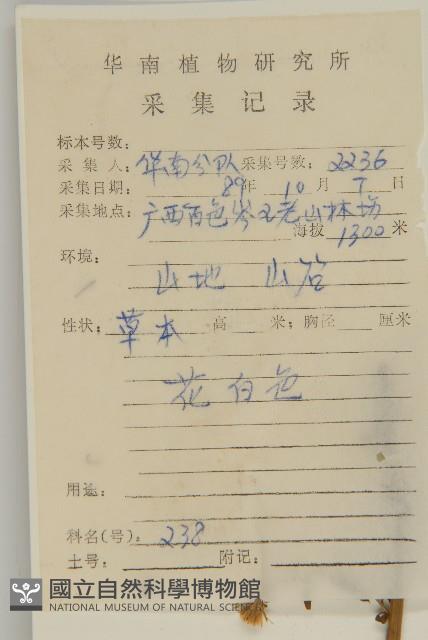 华南植物研究所
采集记录
标本号数:
采集人: 华南分队 采集号数: 2236
采集日期: 89年 10月 7日
采集地点: 广西百色岑王老山林场
海拔 1300 米
环境:
山地 山谷
性状: 草本 高 米; 胸径 厘米
花白色
用途:
科名(号): 238
土号: 附记:
國立自然科學博物館
NATIONAL MUSEUM OF NATURAL SCIENCE